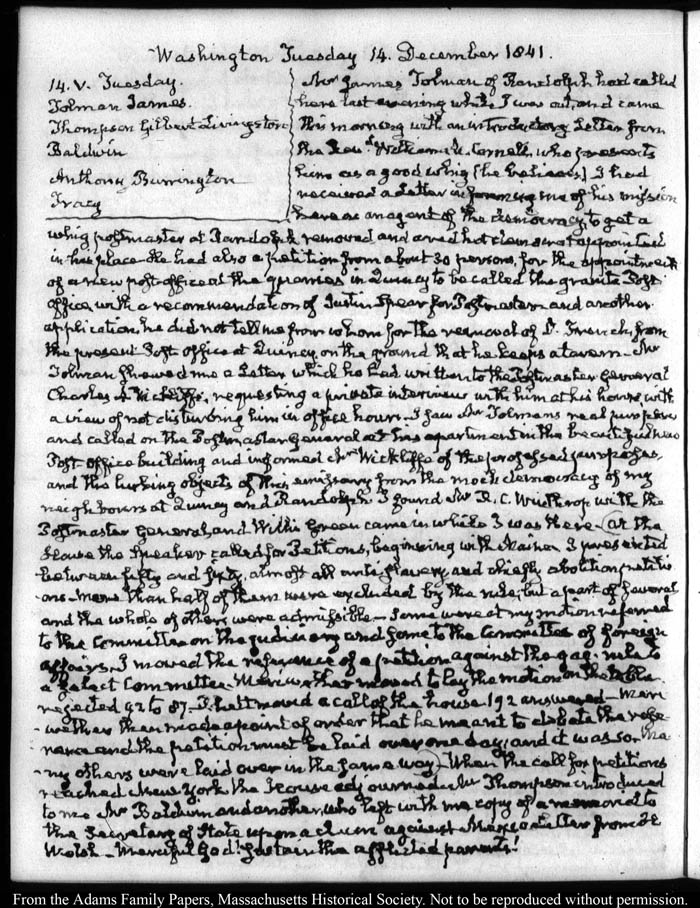 Washington Tuesday 14. December 1841.
14. V. Tuesday.
Tolman James.
Thompson Gilbert Livingston
Baldwin
Anthony Burrington
Tracy
Mr James Tolman of Randolph had called
here last evening while I was out and came
this morning with an introductory Letter from
the Revd. William M. Cornell, who presents
him as a good whig (he believes) I had
received a Letter informing me of his mission
here as an agent of the democracy, to get a
whig postmaster at Randolph removed and a red hot democrat appointed
in his place. He had also a petition from about 30 persons, for the appointment
of a new post-office at the quarries in Quincy to be called the granite Post
office, with a recommendation of Justin Spear for Postmaster and another
application, he did not tell me from whom for the removal of D. French, from
the present Post office at Quincy, on the ground that he keeps a tavern. Mr
Tolman showed me a Letter which he had written to the Postmaster General
Charles A. Wickliffe, requesting a private interview with him at his house, with
a view of not disturbing him in office hours. I saw Mr Tolmans real purpose
and called on the Postmaster General at his apartment in the beautiful new
Post-office building and informed Mr Wickliffe of the professed purposes,
and the lurking objects of this emissary from the mock democracy of my
neighbours at Quincy and Randolph. I found Mr R. C. Winthrop with the
Postmaster General, and Willis Green came in while I was there. At the
House the Speaker called for Petitions, beginning with Maine. I presented
between fifty and sixty, almost all anti-slavery and chiefly abolition petiti-
ons. More than half of them were excluded by the rule, but a part of several
and the whole of others were admissible. Some were at my motion referred
to the Committee on the judiciary and some to the Committee of foreign
affairs. I moved the reference of a petition against the gag-rule to
a select Committee. Meriwether moved to lay the motion on the table
rejected 92 to 87. I moved a call of the house 192 answered. Meri-
wether then made a point of order that he meant to debate the refe-
rence and the petition must be laid over one day, and it was so. Ma-
ny others were laid over in the same way. When the call for petitions
reached New York the House adjourned. Mr Thompson introduced
to me Mr Baldwin and another, who left with me copy of a memorial to
the Secretary of State upon a claim against Mexico. Letter from
Welsh. Merciful God! Sustain the afflicted parents!
From the Adams Family Papers, Massachusetts Historical Society. Not to be reproduced without permission.